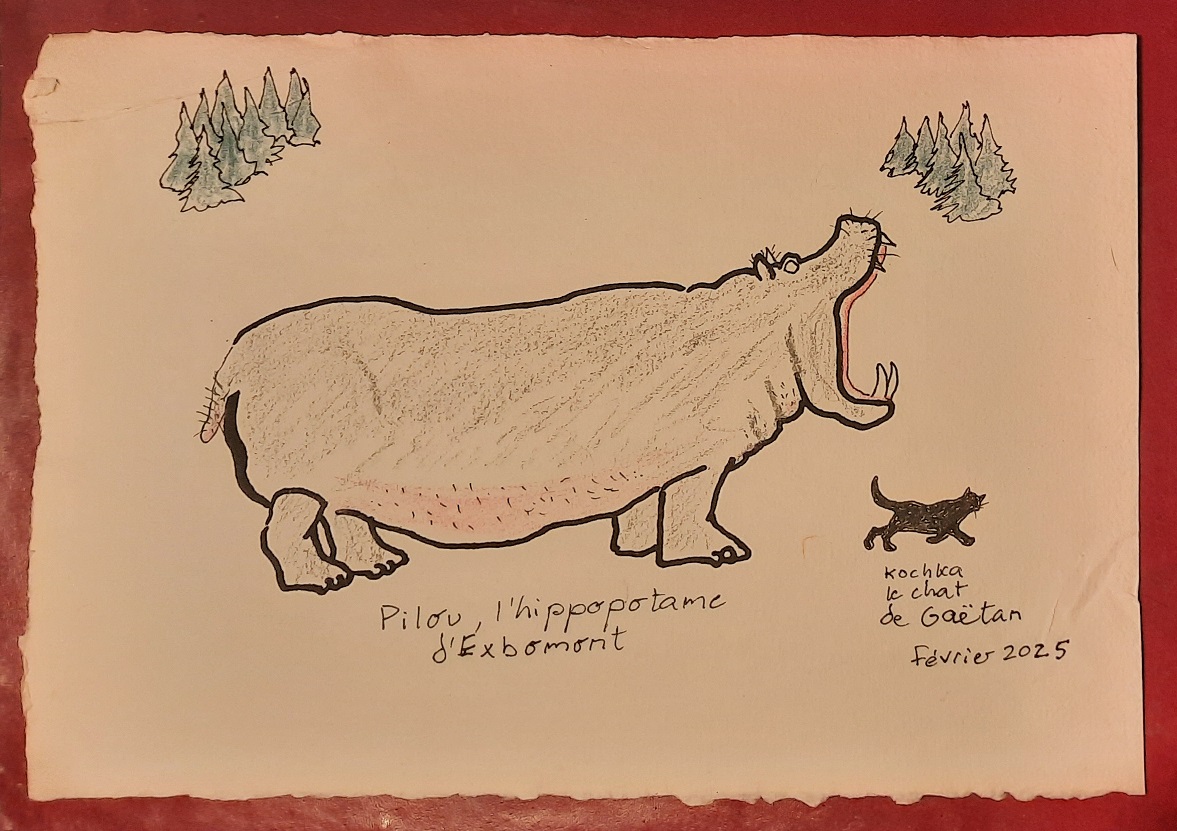 Pilou, l'hippopotame
d'Exbomont
Kochka
le chat
de Gaëtan
février 2025